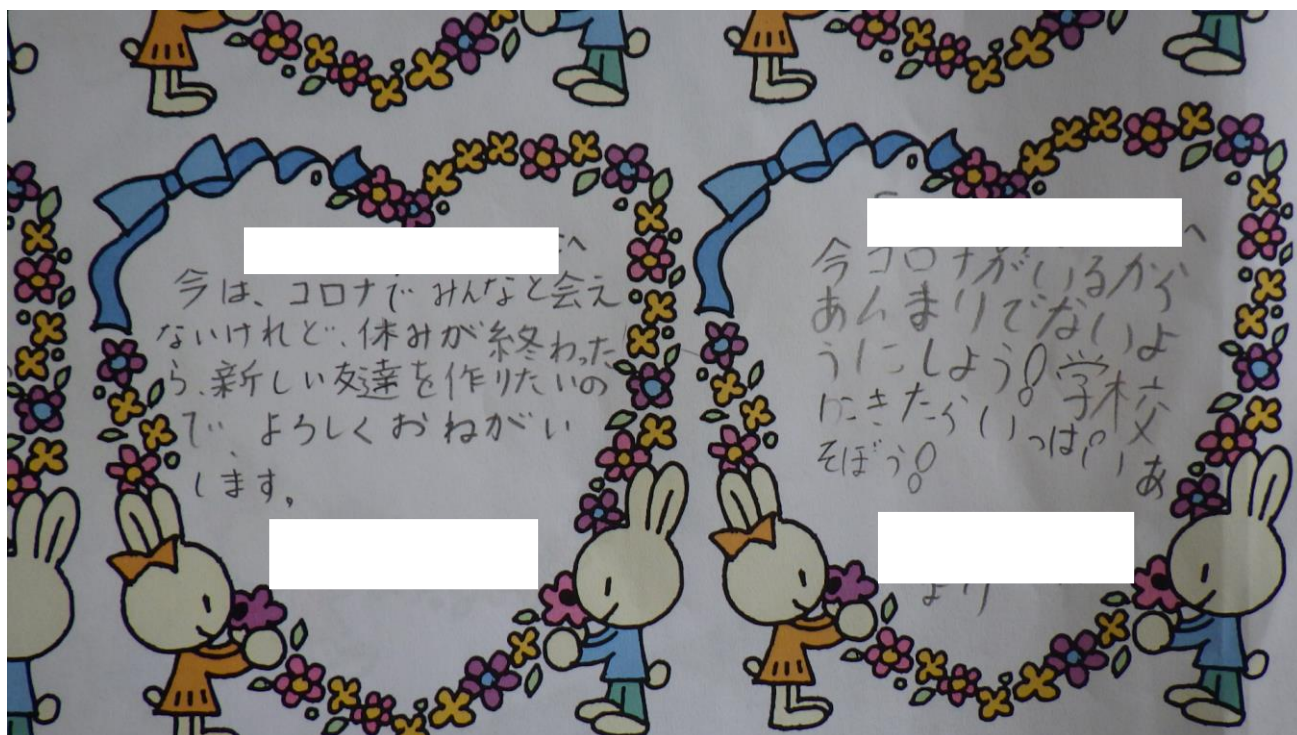 へ
今は、コロナでみんなと会え
ないけれど、休みが終わった
ら、新しい友達を作りたいの
で、よろしくおねがい
します。
へ
今コロナがいるから
あんまりでないよ
うにしよう!学校
にきたらいっぱいあ
そぼう!
より